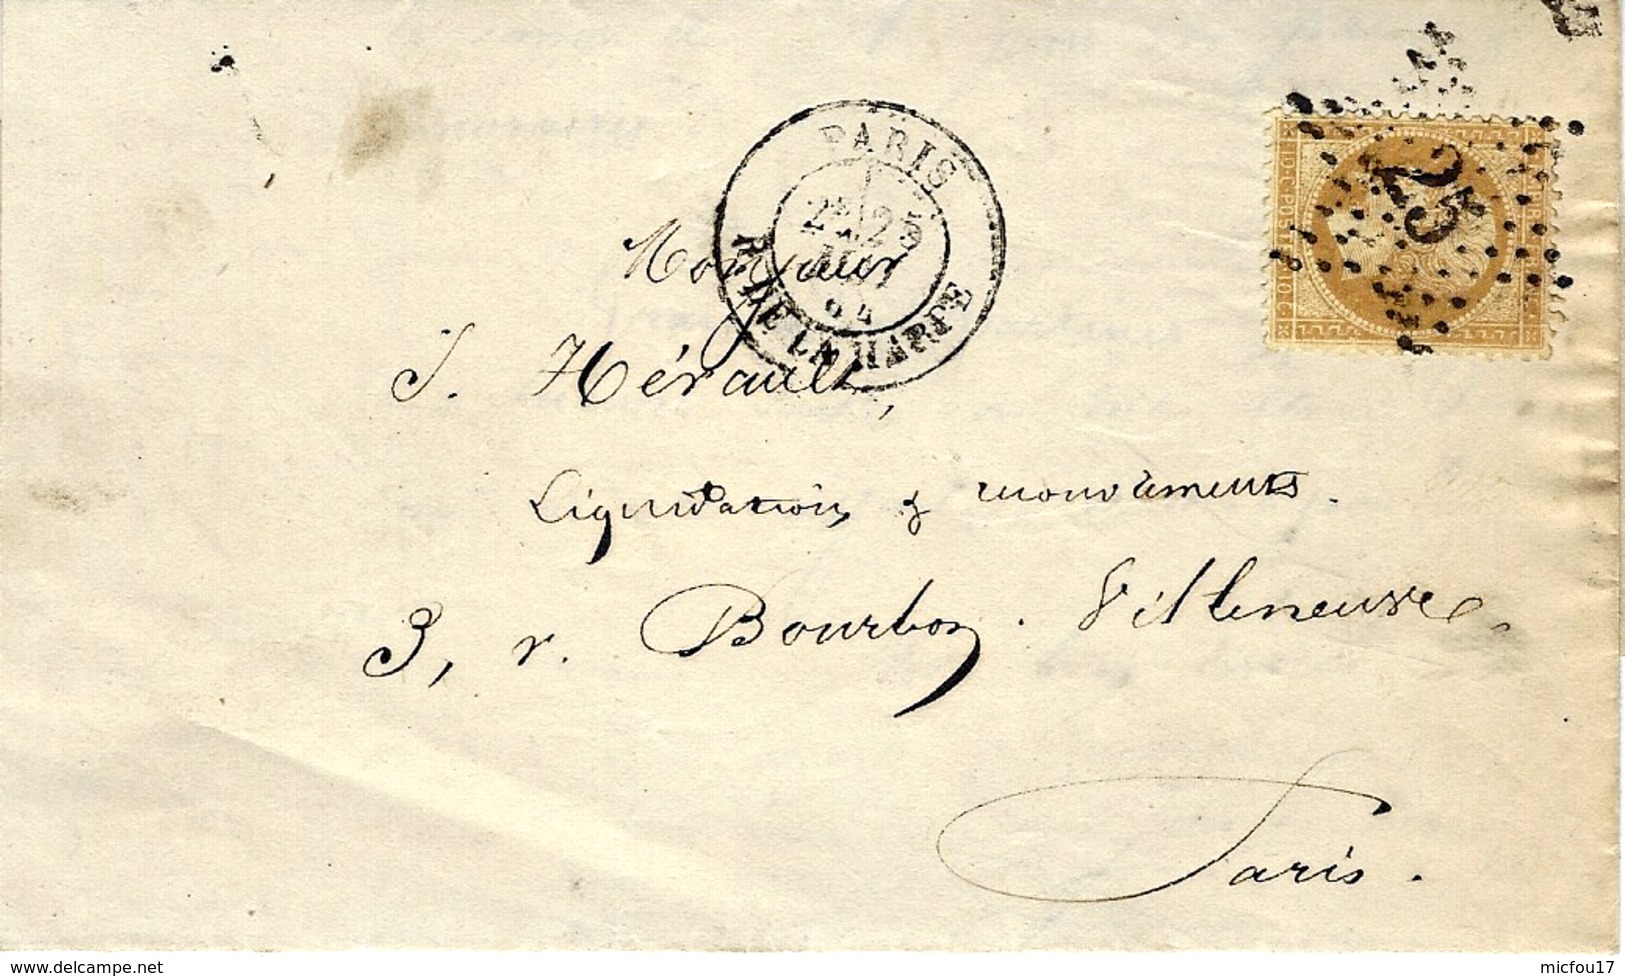 PARIS
25
64
R. DE LA HARPE
25
10 C POSTES 10 C
Monsieur
J. Hérault,
Liquidation & mouvements.
3, r. Bourbon. Villeneuve.
Paris.
www.delcampe.net
micfou17